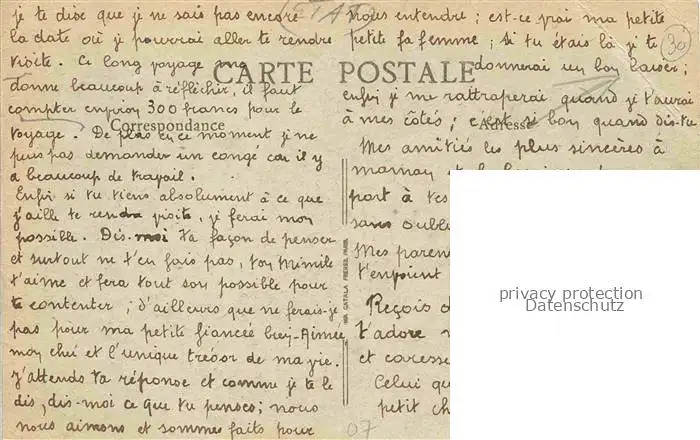 je te dise que je ne sais pas encore
la date où je pourrai aller te rendre
visite. Ce long voyage me
donne beaucoup à réfléchir, il faut
compter environ 300 francs pour le
voyage. De plus en ce moment je ne
puis pas demander un congé car il y
a beaucoup de travail.
Enfin si tu tiens absolument à ce que
j'aille te rendre visite, je ferai mon
possible. Dis-moi ta façon de penser
et surtout ne t'en fais pas, ton Mimile
t'aime et fera tout son possible pour
te contenter; d'ailleurs que ne ferais-je
pas pour ma petite fiancée bien-Aimée
mon chéri et l'unique trésor de ma vie.
J'attends ta réponse et comme je te le
dis, dis-moi ce que tu penses; nous
nous aimons et sommes faits pour
nous entendre; est-ce vrai ma petite
petite fa femme; si tu étais là je te
donnerai un bon baiser;
enfin je me rattraperai quand je t'aurai
à mes côtés; c'est si bon quand dis-tu
Mes amitiés les plus sincères à
maman et
part à tes
sans oubli
Mes paren
t'envoient
Reçois d
t'adore
et caresse
Celui qu
petit ch
CARTE POSTALE
Correspondance
Adresse
CATALA FRERES, PARIS
30
07
privacy protection
Datenschutz